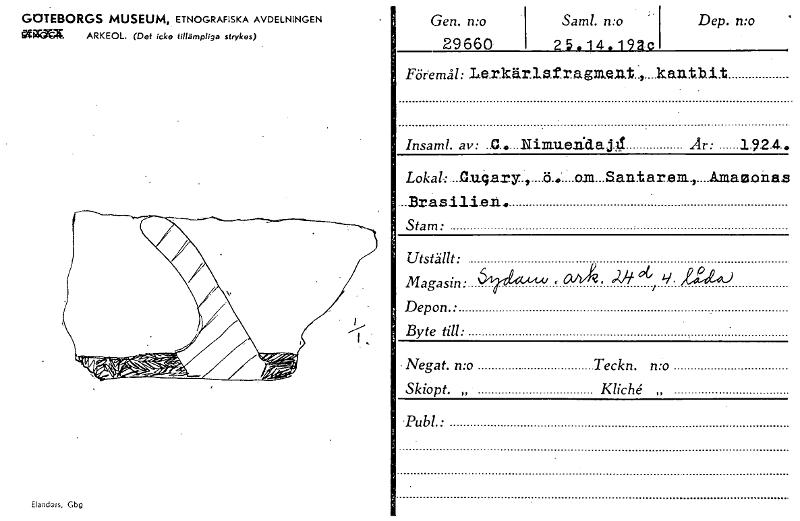 GÖTEBORGS MUSEUM, ETNOGRAFISKA AVDELNINGEN
ARKEOL. (Det icke tillämpliga strykes)
1/1.
Elanders, Gbg
Gen. n:o Saml. n:o Dep. n:o
29660 25.14.192c
Föremål: Lerkärlsfragment, kantbit
Insaml. av: C. Nimuendajú År: 1924.
Lokal: Cuçary, ö. om Santarem, Amazonas
Brasilien.
Stam:
Utställt:
Magasin: Sydam. ark. 24 d, 4. låda
Depon.:
Byte till:
Negat. n:o Teckn. n:o
Skiopt. „ Kliché „
Publ.: